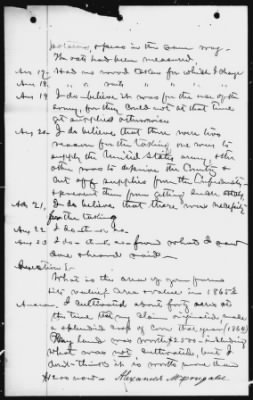 potatoes, & peas in the same way.
The oats had been measured.
Ans 17. Had no wood taken for which I charge
Ans 18. " " rails " " " "
Ans 19 I do believe it was for the use of the
army, for they could not at that time
get supplies otherwise
Ans 20 I do believe that there were two
reasons for the taking one was to
supply the United States army, the
other was to deprive the Country &
cut off supplies from the Confederates &
prevent them from getting such stuff.
Ans 21. I do believe that there was necessity
for the taking
Ans 22 I do
Ans 23 I do so found what I saw
and heard said
Question 1.
What is the area of your farm &
its value, area & value in 1865?
Answer. I cultivated about forty acres at
the time that my claim originated, made
a splendid crop of corn that year (1864)
My land was worth $2500 including
what was not cultivated, but I
don't think it is worth more than
now. Alexander McDougald